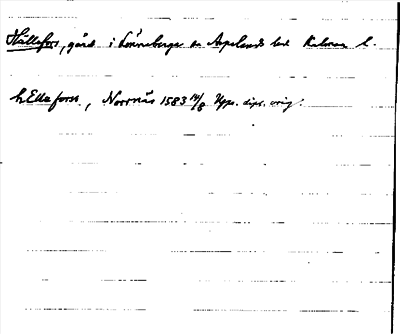 Hällefors, gård i Lönneberga sn Aspelands hd Kalmar l.
hElleforss, Norrnäs 1583 14/8 Upps. dipl. orig.